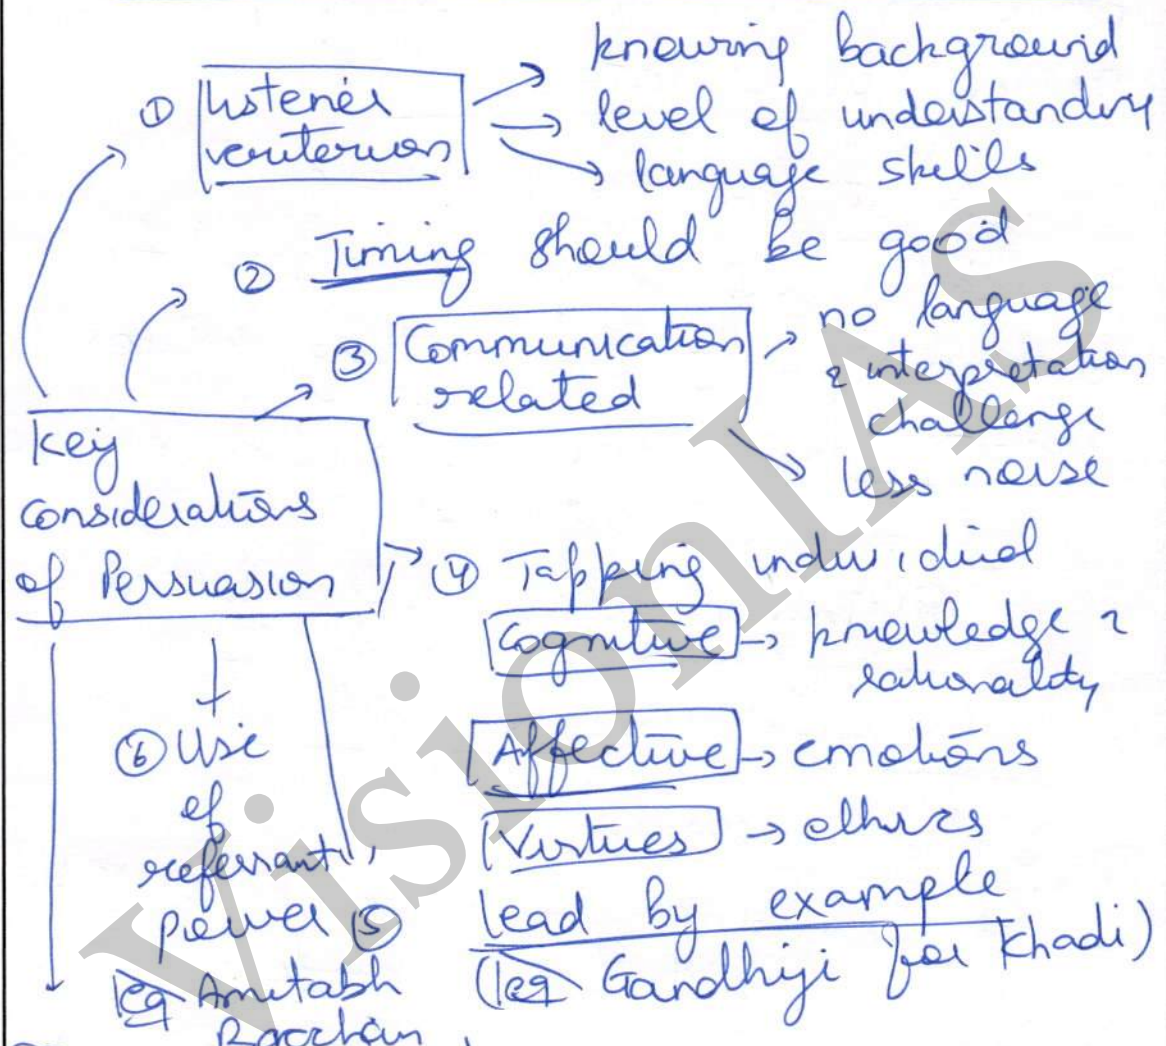 ① Listener
criterion
knowing background
level of understanding
language skills
② Timing should be good
③ Communication
related
no language
& interpretation
challenge
less noise
Key
Considerations
of Persuasion
④ Tapping individual
Cognitive → knowledge &
rationality
Affective → emotions
Virtues → ethics
⑤ lead by example
(eg Gandhiji for Khadi)
⑥ Use
of
referrant
power
eg Amitabh
Bacchan
VisionIAS